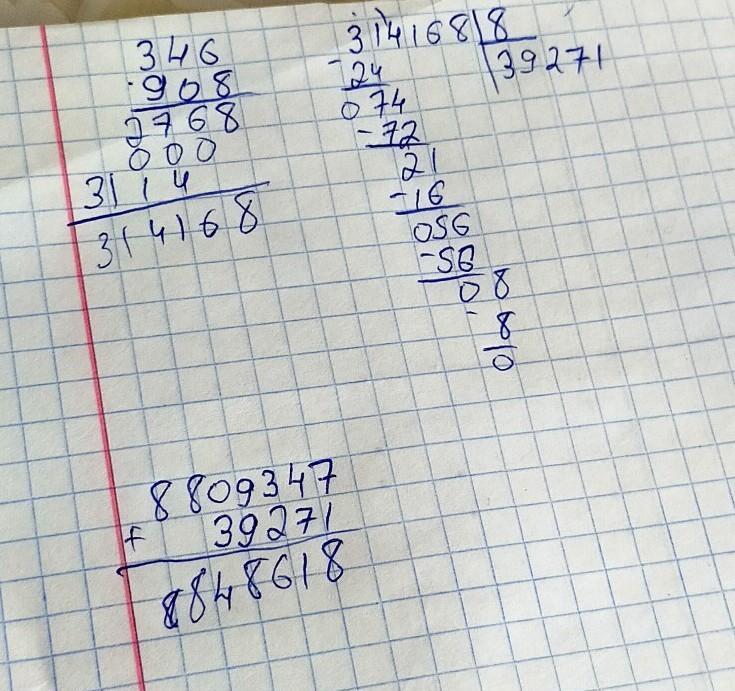 346
·908
2768
000
3114
314168
314168|8
-24 |39271
074
-72
21
-16
056
-56
08
- 8
0
8809347
+ 39271
8848618